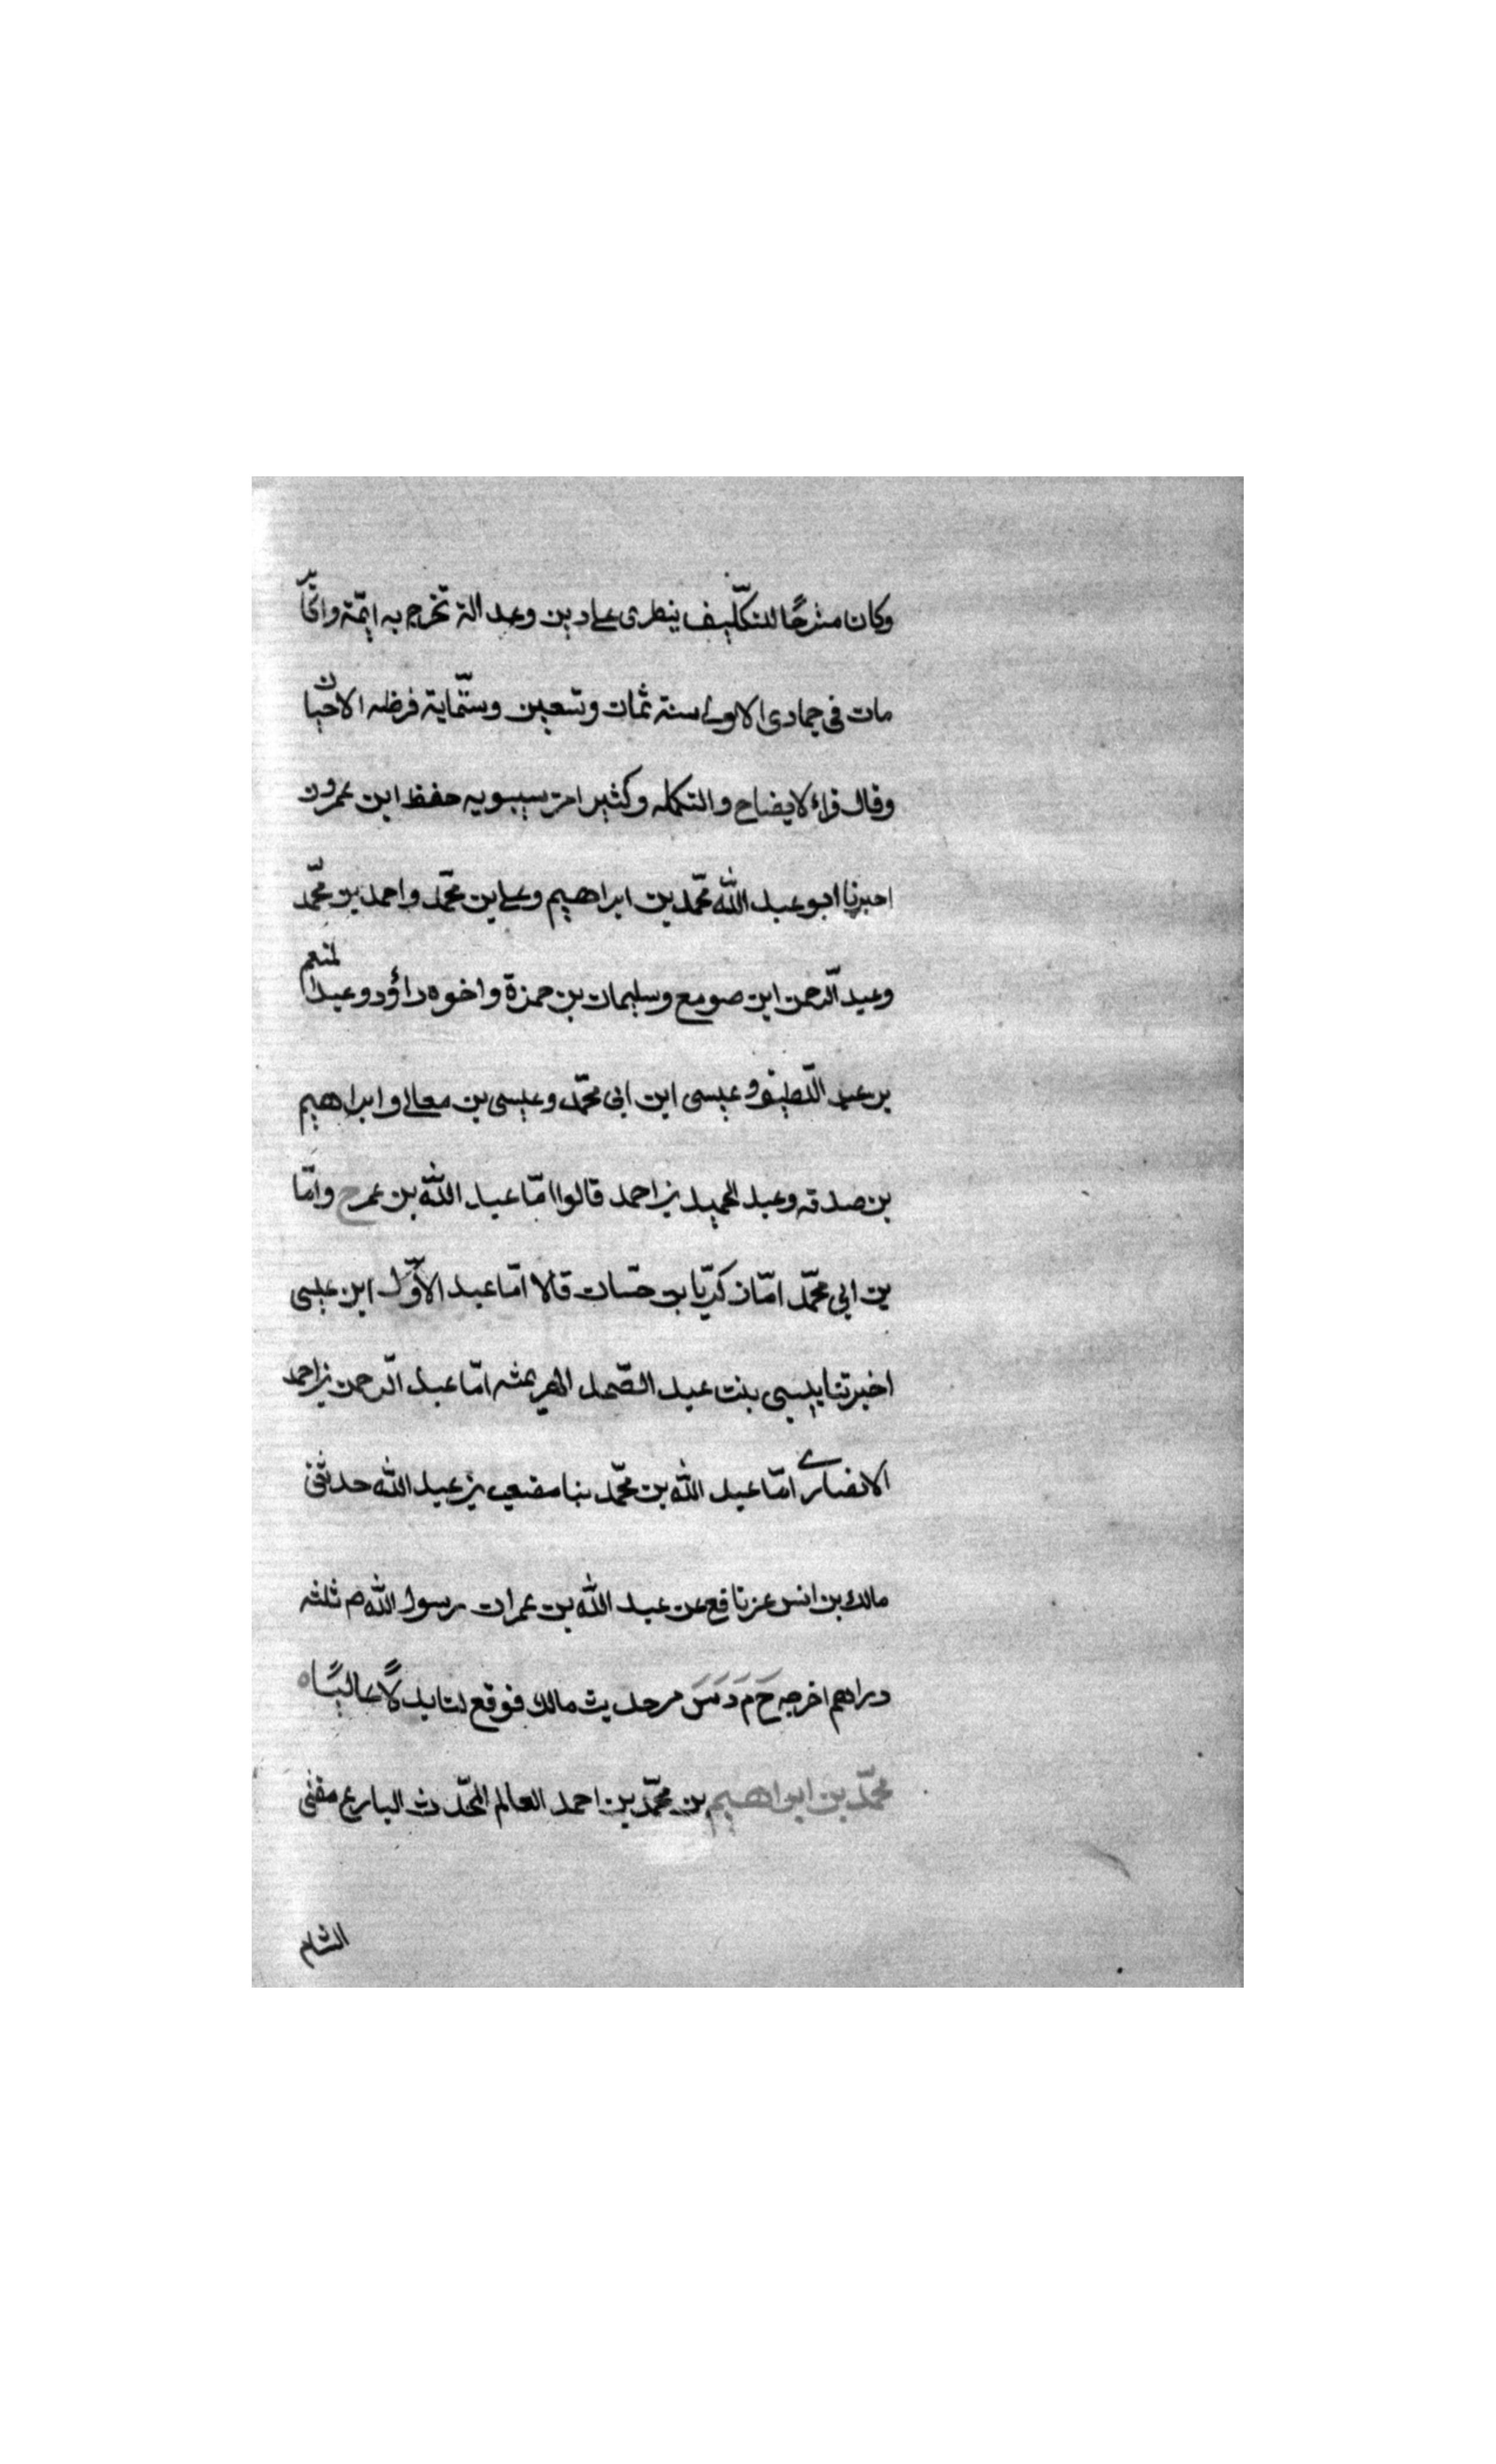 وكان مترحًا للتكلّيف ينطرى على دين وعدالة تخرج به ايمّة واتحاّ
مات فى جمادى الاولى سنة ثمان وتسعين وستّماية فرظه الاحيان
وقال قراء لايضاح والتكمله وكثير امن سيبويه حفظ ابن عمرون
اخبرنا ابو عبد اللّه محّمد بن ابراهيم وعلى بن محّمد واحمد بن محّمد
وعبد الّرحمن ابن صومع وسليمان بن حمزة واخوه داؤد وعبد المنعم
بن عبد الّلطيف وعيسى ابن ابى محّمد وعيسى بن معالى وابراهيم
بن صدقه وعبد الحميد بن احمد قالوا امّا عبد اللّه بن عمر ح وامّا
بن ابى محّمد امّا زكريّا بن حسّان قالا امّا عبد الاوّل ابن عيسى
اخبرتنا بيبى بنت عبد الصّمد الهرثمثه امّا عبد الّرحمن بن احمد
الانصارے امّا عبد اللّه بن محّمد بنا مصعب بن عبد اللّه حدثنى
مالك بن انس عن نافع عن عبد اللّه بن عمران رسول اللّه م ثلثه
دراهم اخرجه خ م د س من حديث مالك فوقع لنا بدلًا عاليًا ه
محّمد بن ابراهيم بن محّمد بن احمد العالم المحّدث البارع مفتى
الشام